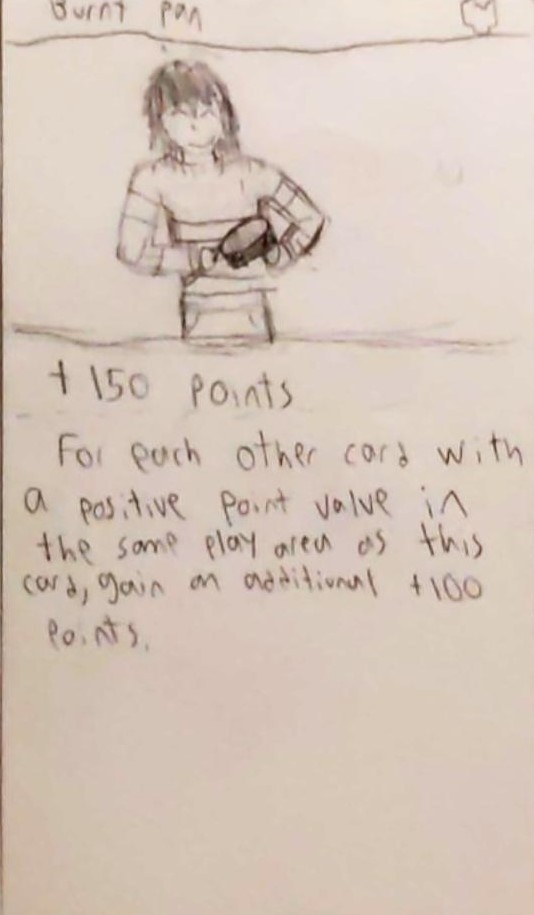 Burnt Pan
+150 Points
For each other card with
a positive point value in
the same play area as this
card, gain an additional +100
Points.